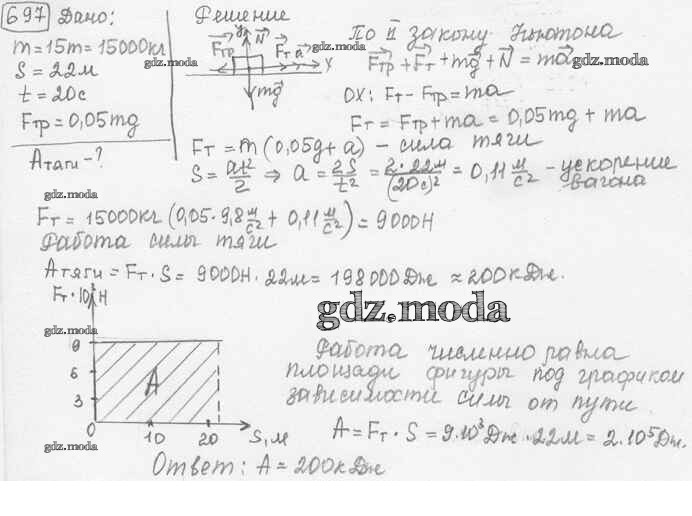 697 Дано:
m=15т=15000кг
S=22м
t=20с
Fтр=0,05mg
Aтяги-?
gdz.moda
Решение
y N
Fтр Fт a x
gdz.moda
mg
По II закону Ньютона
gdz.moda
Fтр+Fт+mg+N=ma
gdz.moda
OX: Fт-Fтр=ma
Fт=Fтр+ma=0,05mg+ma
Fт=m(0,05g+a) - сила тяги
S=at²/2 ⇒ a=2S/t²=2·22м/(20с)²=0,11 м/с² - ускорение вагона
gdz.moda
Fт=15000кг(0,05·9,8 м/с²+0,11 м/с²)=9000Н
Работа силы тяги
Aтяги=Fт·S=9000Н·22м=198000Дж≈200кДж.
Fт·10³Н
gdz.moda
gdz.moda
9
6
3
0
A
10
20
S,м
gdz.moda
Работа численно равна
площади фигуры под графиком
зависимости силы от пути.
A=Fт·S=9·10³Дж·22м=2·10⁵Дж.
gdz.moda
Ответ: A=200кДж